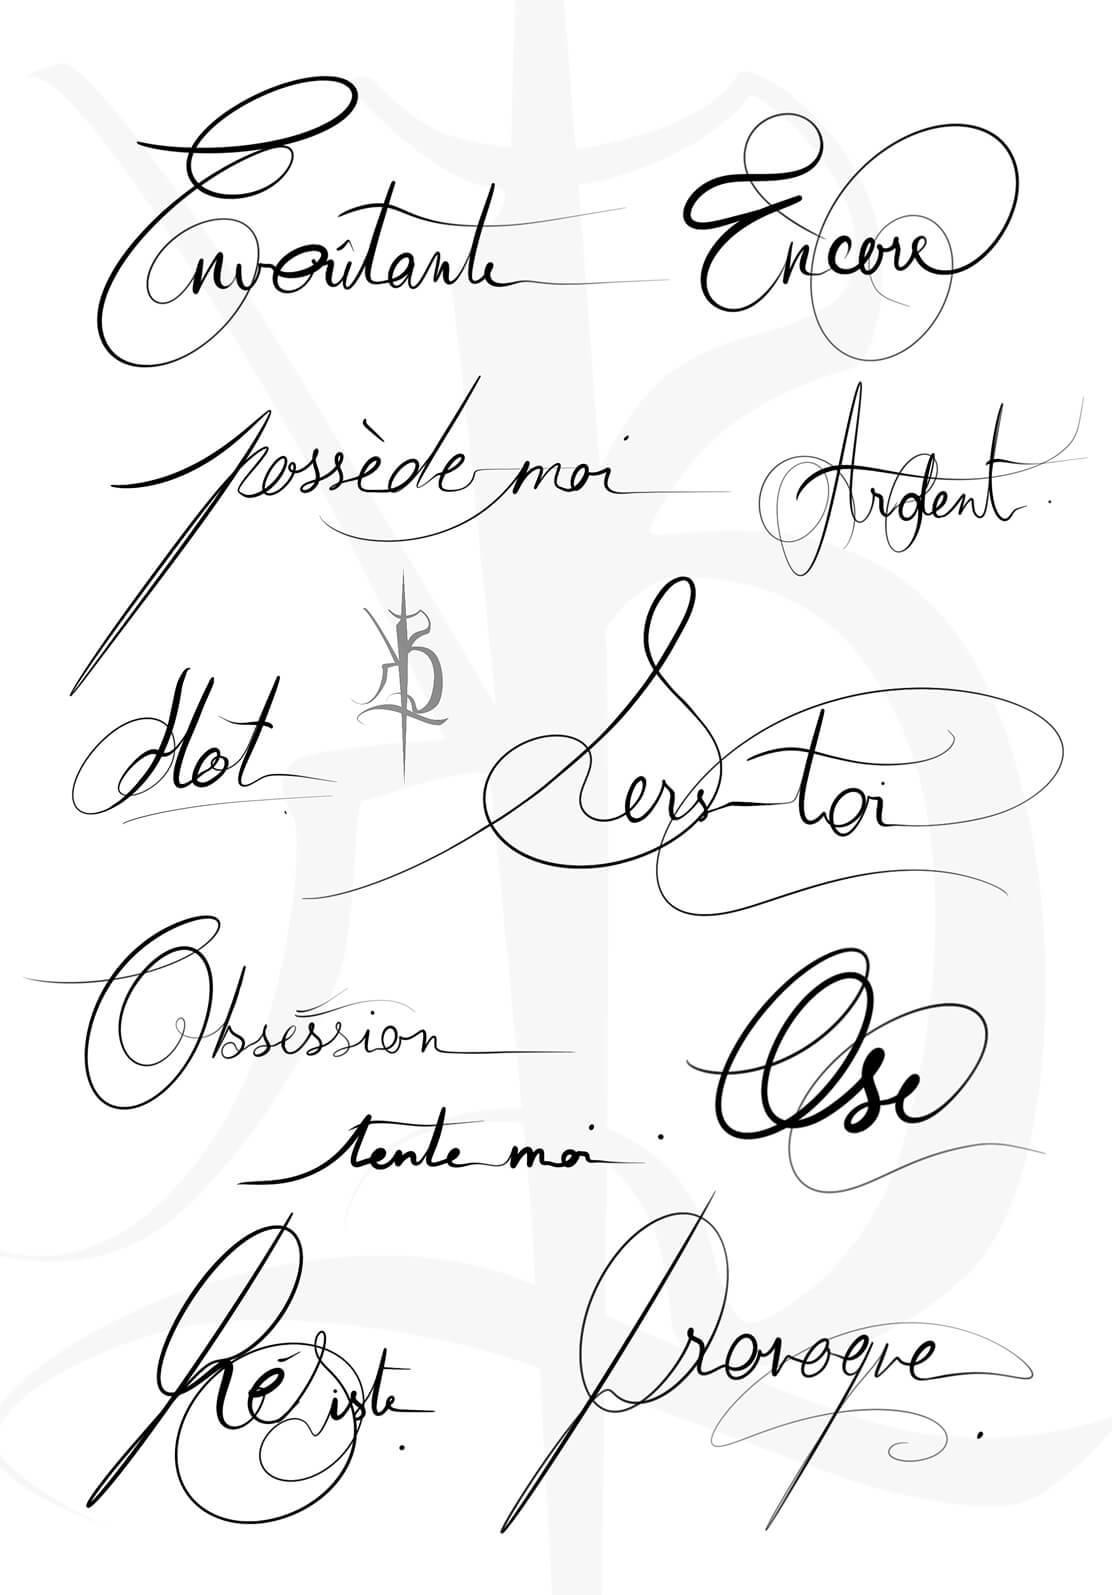 Envoûtante
Encore
possède moi
Ardent.
Hot.
Sers-toi
Obsession
Ose
tente moi.
Résiste.
Provoque.